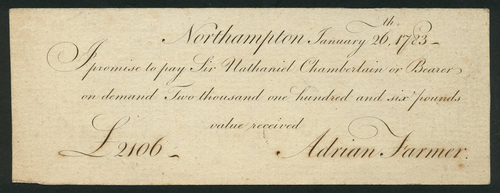 Northampton January 26th, 1783-
I promise to pay Sir Nathaniel Chamberlain or Bearer
on demand Two thousand one hundred and six pounds
value received
£2106- Adrian Farmer.